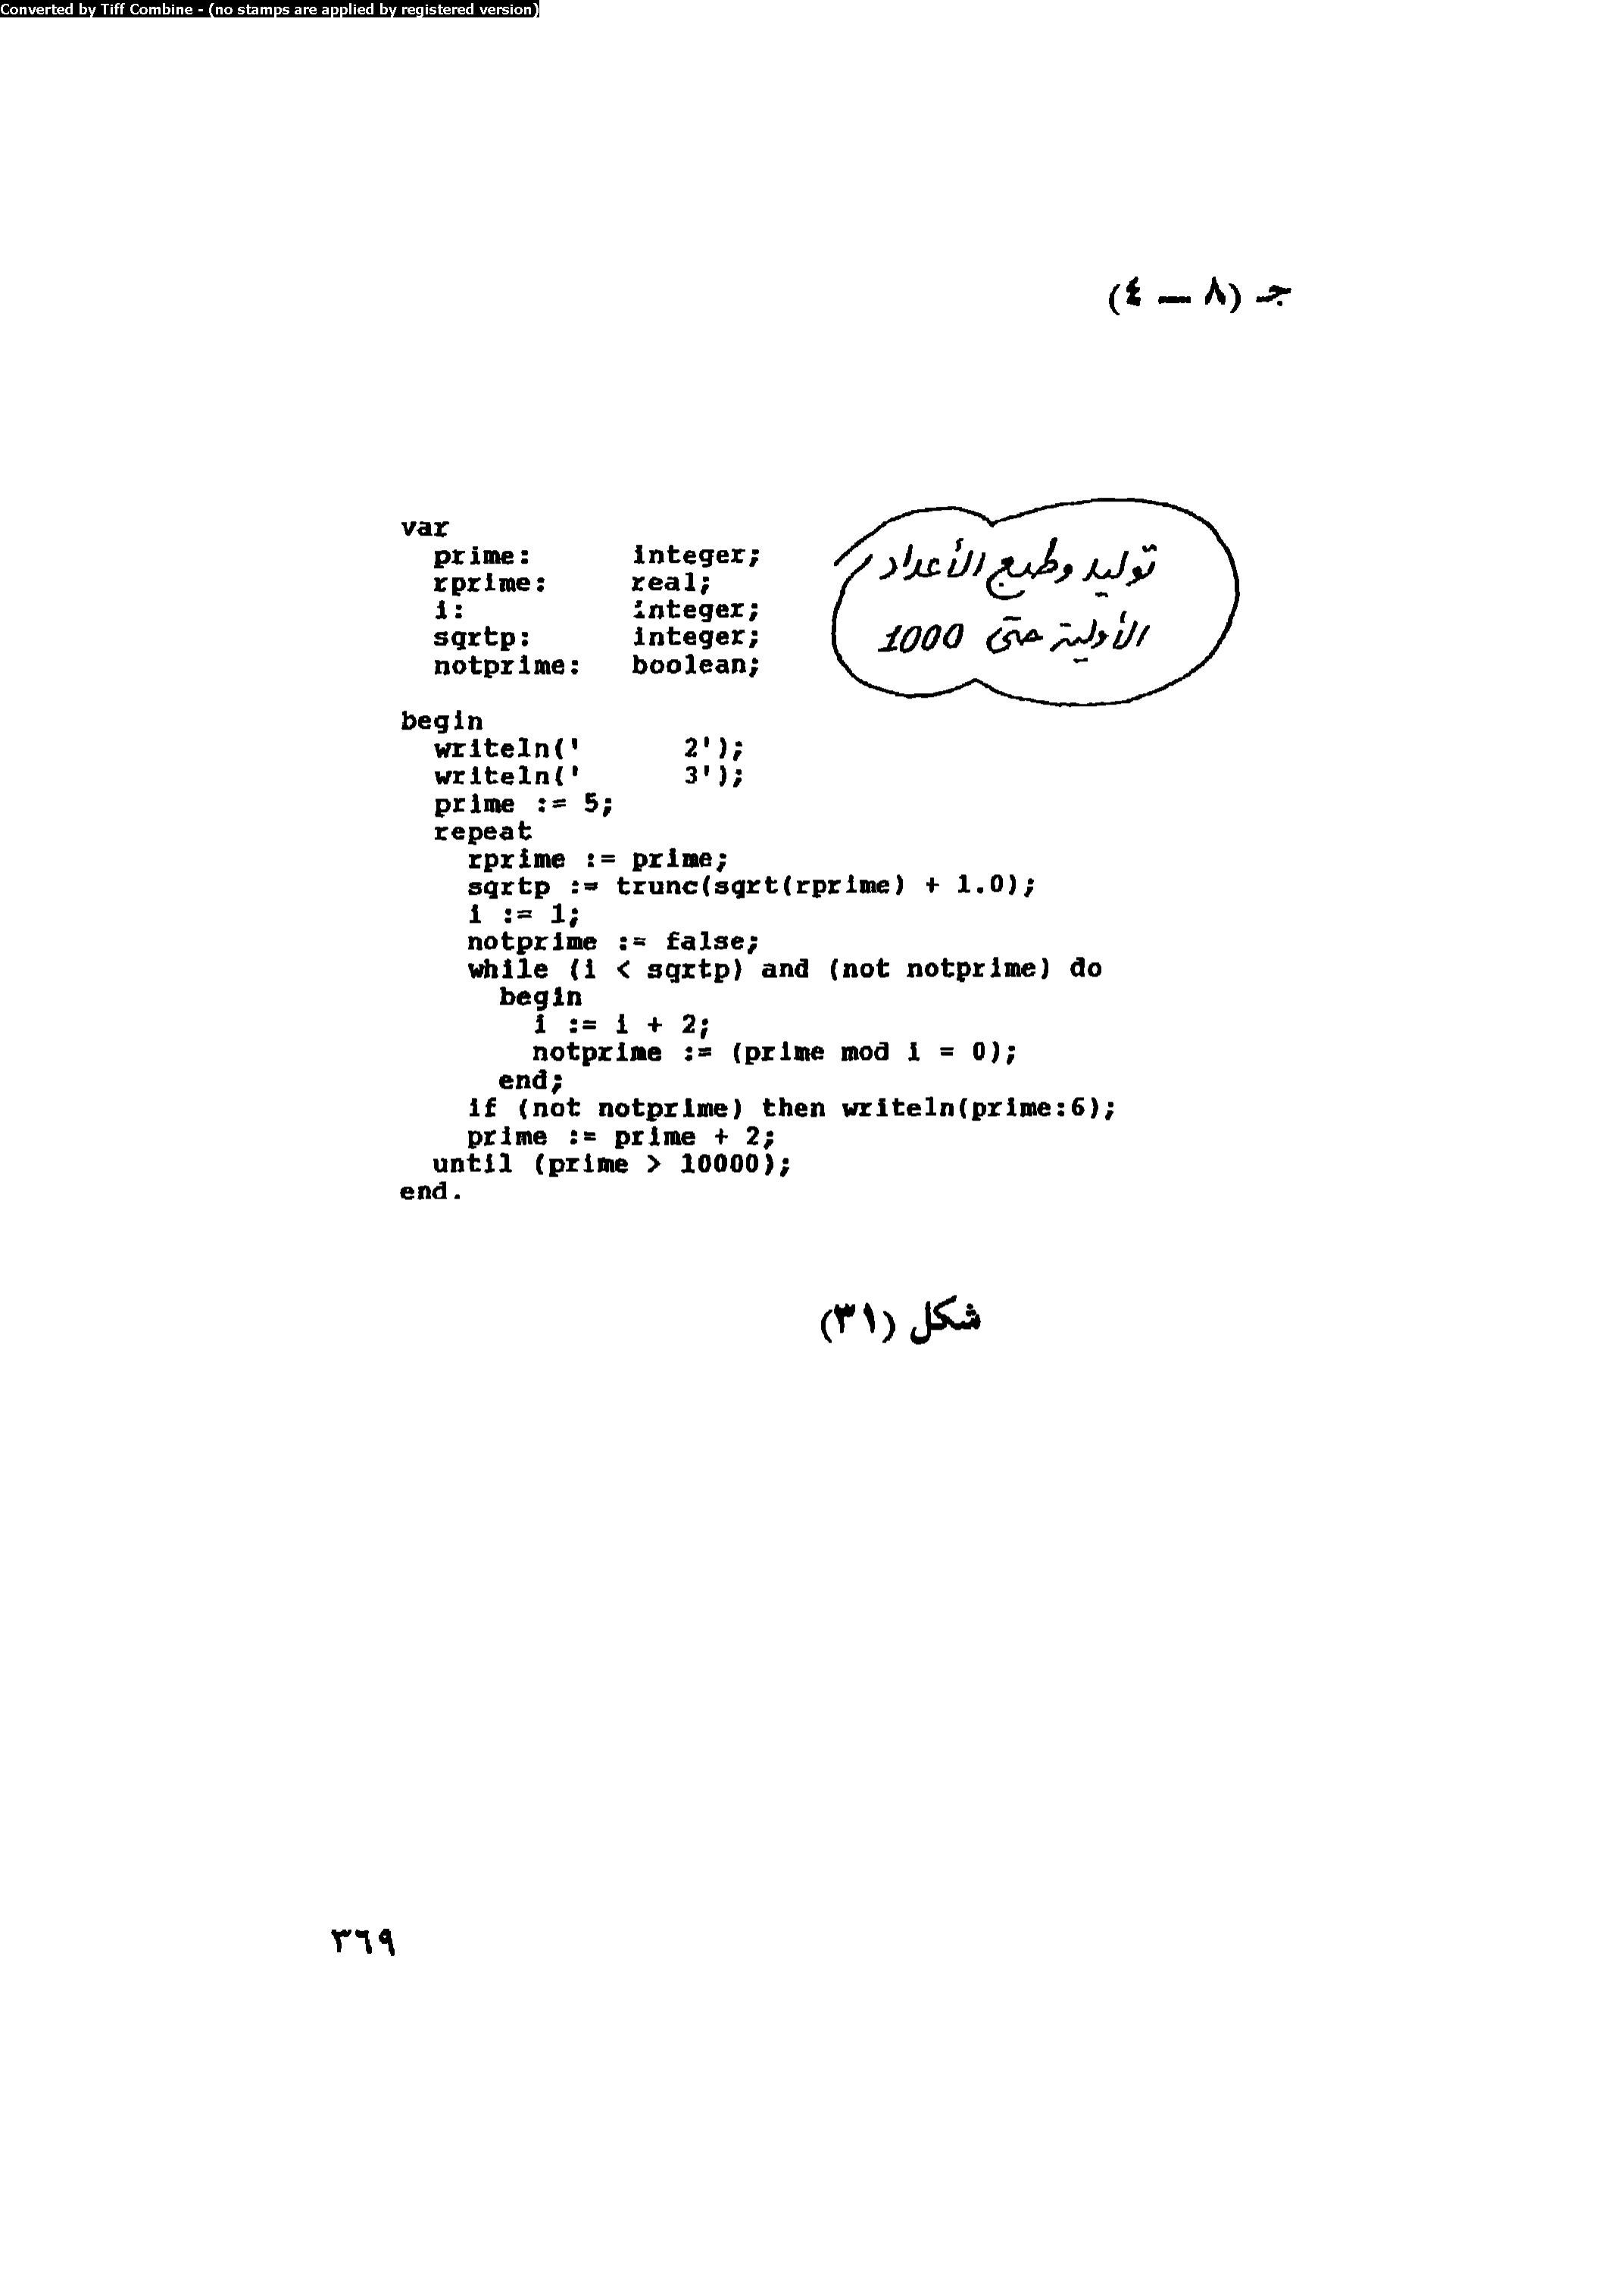 Converted by Tiff Combine - (no stamps are applied by registered version)
جـ (٨ — ٤)
توليد وطبع الأعداد
الأولية حتى 1000
var
  prime:      integer;
  rprime:     real;
  i:          integer;
  sqrtp:      integer;
  notprime:   boolean;
begin
  writeln('      2');
  writeln('      3');
  prime := 5;
  repeat
    rprime := prime;
    sqrtp := trunc(sqrt(rprime) + 1.0);
    i := 1;
    notprime := false;
    while (i < sqrtp) and (not notprime) do
      begin
        i := i + 2;
        notprime := (prime mod i = 0);
      end;
    if (not notprime) then writeln(prime:6);
    prime := prime + 2;
  until (prime > 10000);
end.
شكل (٣١)
٣٦٩